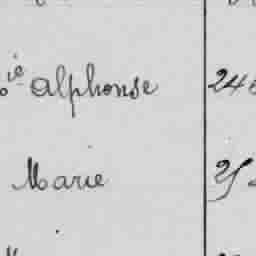 ie Alphonse 24
Marie 25